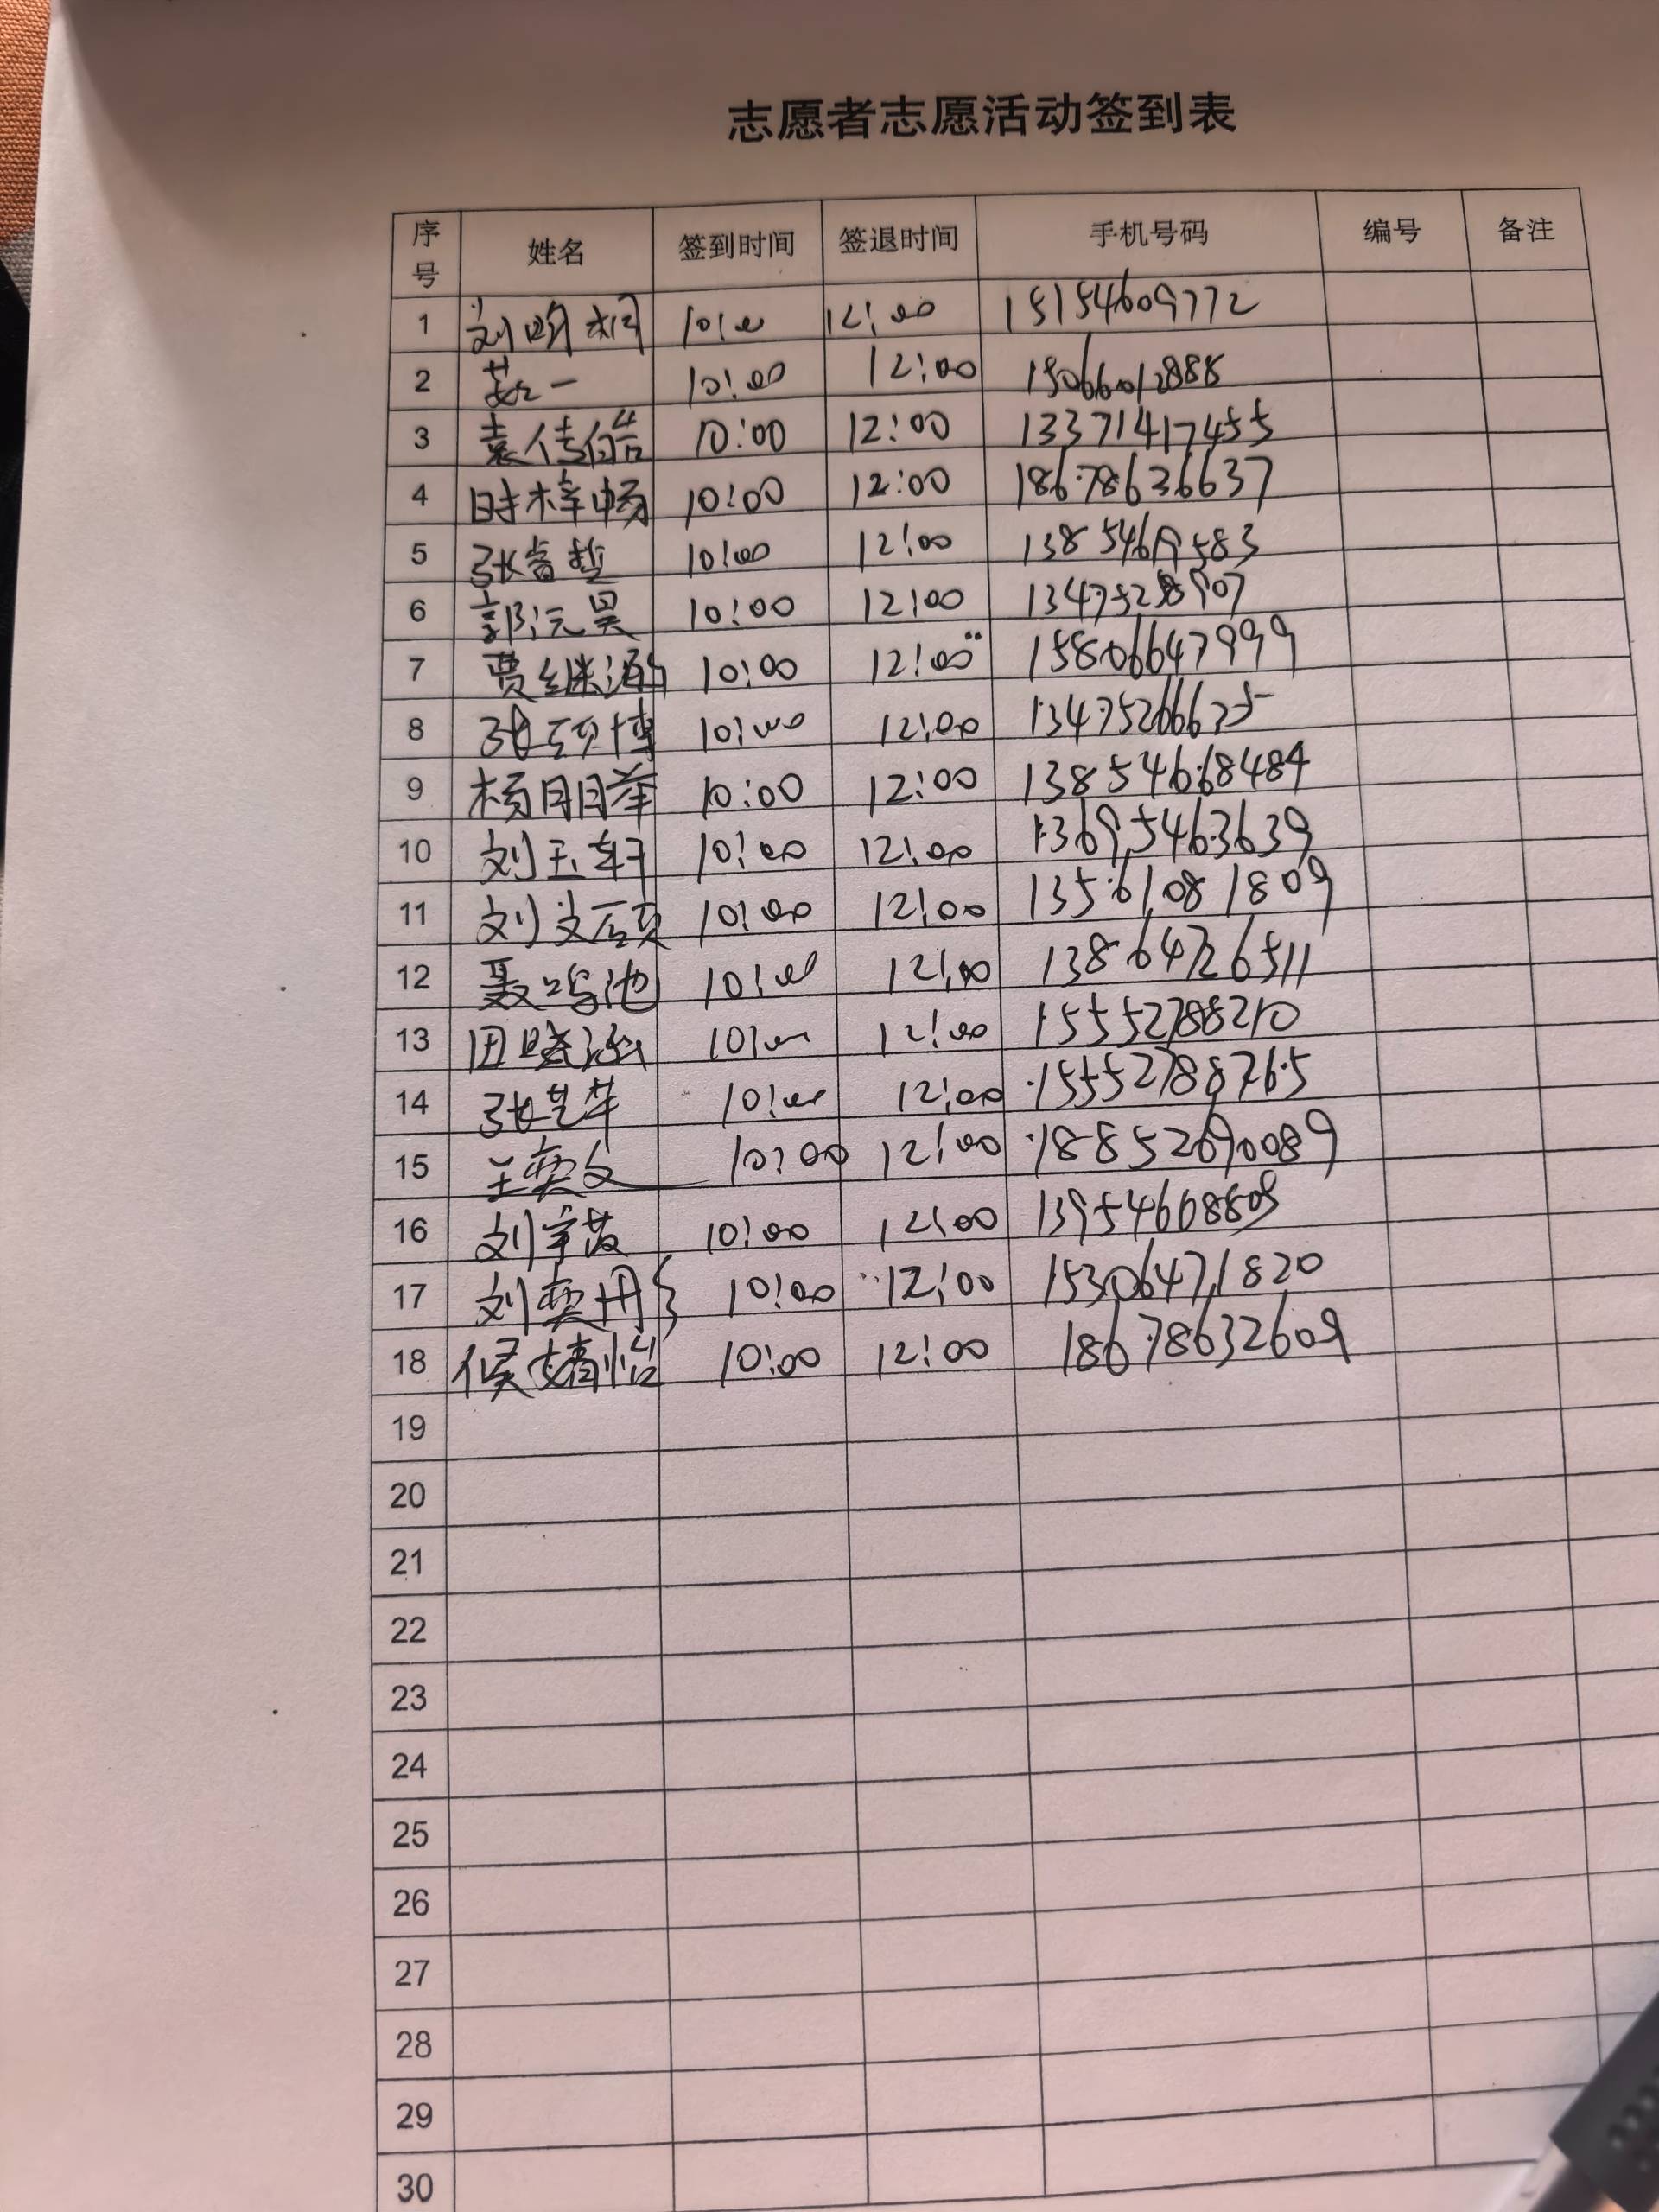 志愿者志愿活动签到表
序号 姓名 签到时间 签退时间 手机号码 编号 备注
1 刘明桐 10:00 12:00 15154609772
2 一 10:00 12:00
3 袁佳皓 10:00 12:00 13371417455
4 时梓畅 10:00 12:00 18678636637
5 张睿哲 10:00 12:00 13854619583
6 郭沅昊 10:00 12:00
7 贾继源 10:00 12:00 15806647999
8 张硕博 10:00 12:00
9 杨月月荦 10:00 12:00 13854668484
10 刘玉轩 10:00 12:00 13695463639
11 刘文硕 10:00 12:00 13561081809
12 聂鸣池 10:00 12:00 13864726511
13 田晓涵 10:00 12:00 15552788210
14 张艺苹 10:00 12:00 15552788765
15 王奕文 10:00 12:00 18852690089
16 刘宇茂 10:00 12:00
17 刘奕丹 10:00 12:00 15306471820
18 候婧怡 10:00 12:00 18678632609
19
20
21
22
23
24
25
26
27
28
29
30